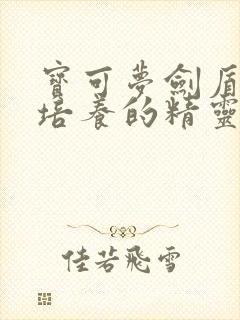 寶可夢劍盾
培養的精靈
佳若飛雪